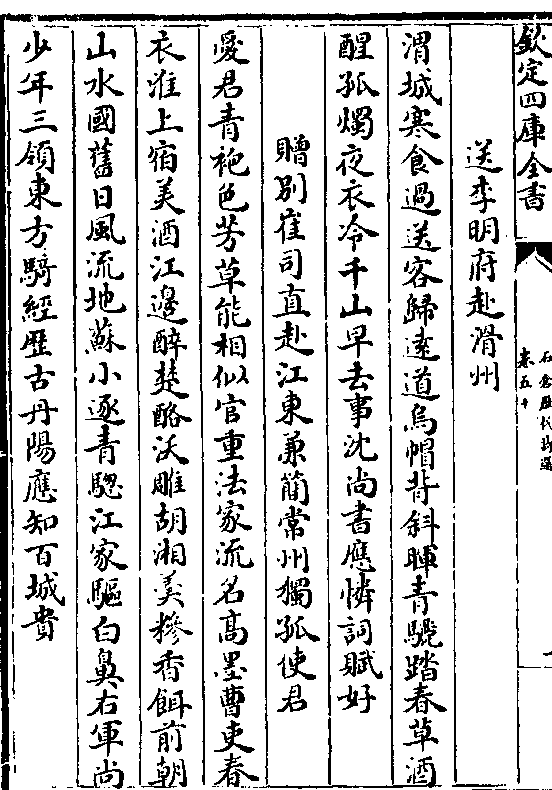 欽定四庫全書
石倉歷代詩選
卷五十
送李明府赴滑州
渭城寒食過送客歸遠道烏帽背斜暉青驄踏春草酒
醒孤燭夜衣冷千山早去事沈尚書應憐詞賦好
贈別崔司直赴江東兼簡常州獨孤使君
愛君青袍色芳草能相似官重法家流名高墨曹吏春
衣淮上宿美酒江邊醉楚酪沃雕胡湘羹糝香餌前朝
山水國舊日風流地蘇小逐青驄江家驅白鼻右軍尚
少年三領東方騎經歷古丹陽應知百城貴